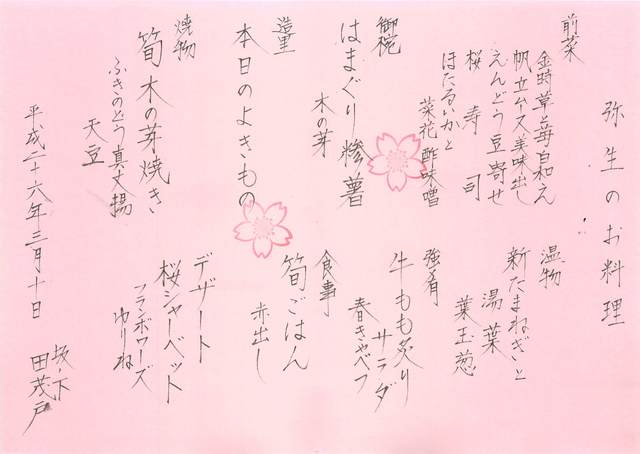 弥生のお料理
前菜
金時草と苺白和え
帆立ムース美味出し
えんどう豆寄せ
桜寿司
ほたるいかと
菜花酢味噌
御椀
はまぐり糝薯
木の芽
造里
本日のよきもの
焼物
筍木の芽焼き
ふきのとう真丈揚
天豆
温物
新たまねぎと
湯葉
葉玉葱
強肴
牛もも炙り
サラダ
春きゃべつ
食事
筍ごはん
赤出し
デザート
桜シャーベット
フランボワーズ
ゆりね
平成二十六年三月十日
坂ノ下
田茂戸